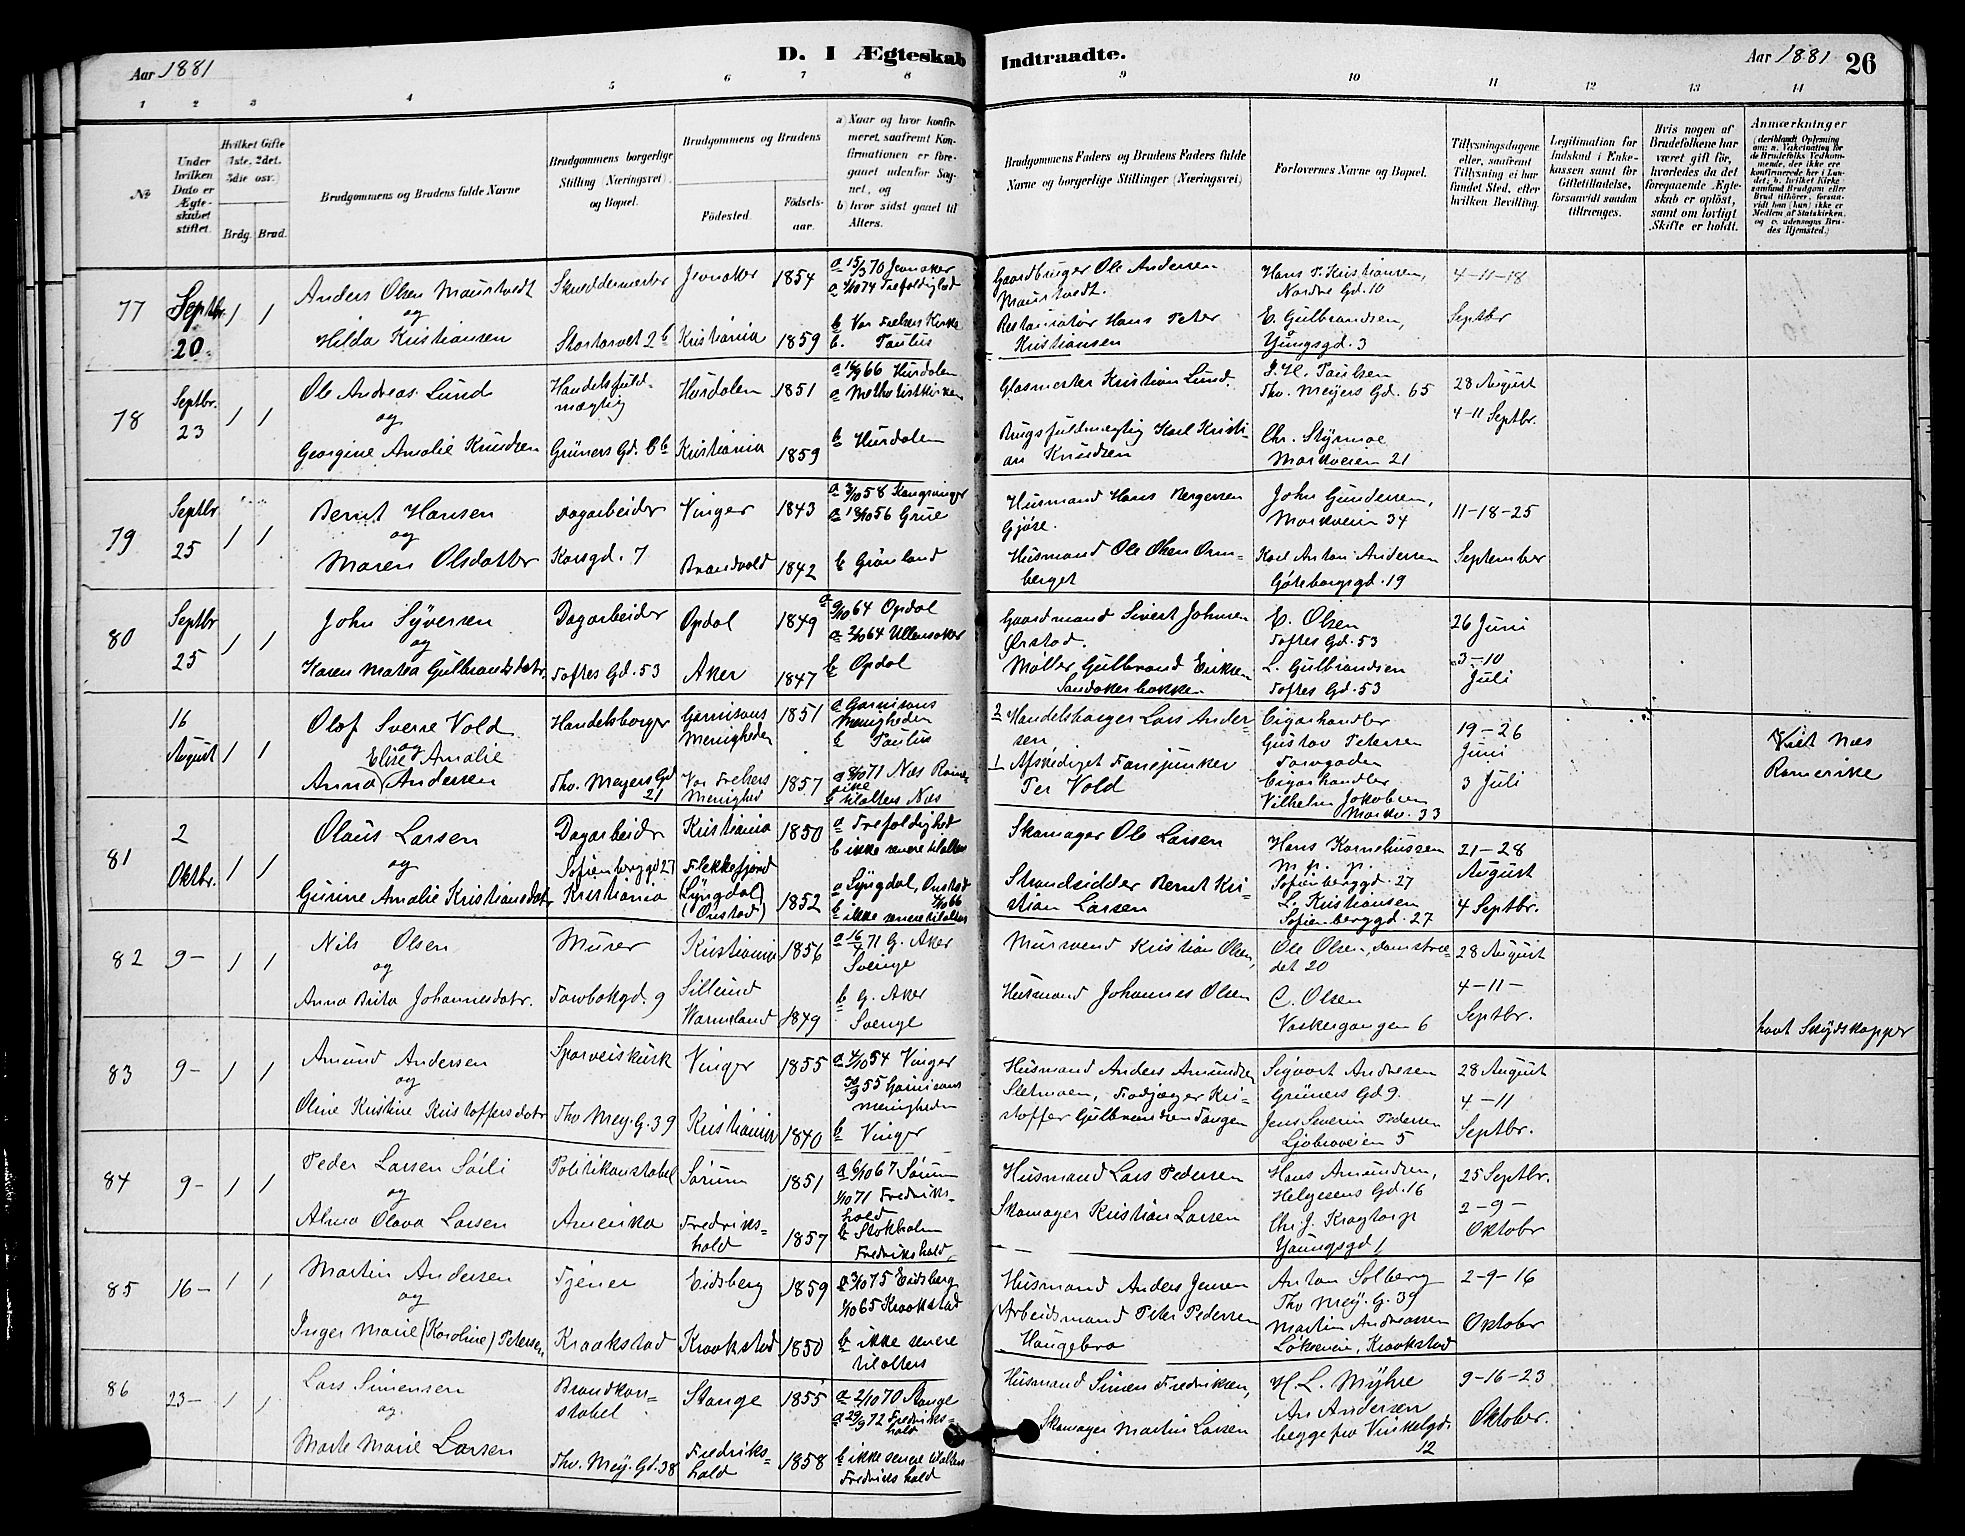 Aar 1881
D. I Ægteskab Indtraadte.
Aar 1881
26
1 2 3 4 5 6 7 8 9 10 11 12 13 14
No
Under hvilken Dato er Ægteskabet stiftet.
Hvilket Gifte (1ste, 2det, 3die osv.)
Brdg. Brud.
Brudgommens og Brudens fulde Navne
Brudgommens borgerlige Stilling (Næringsvei) og Bopæl.
Brudgommens og Brudens
Födested.
Födselsaar.
a) Naar og hvor konfirmeret, saafremt Konfirmationen er foregaaet udenfor Sognet, og
b) hvor sidst gaaet til Alters.
Brudgommens Faders og Brudens Faders fulde Navne og borgerlige Stillinger (Næringsvei)
Forlovernes Navne og Bopæl.
Tillysningsdagene eller, saafremt Tillysning ei har fundet Sted, efter hvilken Bevilling.
Legitimation for Indskud i Enkekassen samt for Giftetilladelse, forsaavidt saadan tiltrænges.
Hvis nogen af Brudefolkene har været gift før, hvorledes da det foregaaende Ægteskab er oplöst, samt om lovligt Skifte er holdt.
Anmærkninger
77
Septbr. 20
1 1
Anders Olsen Maurtvedt
og
Hilda Kristiansen
Skreddermester
Stortorvet 2b
Jevnaker 1854
Kristiania 1859
a 15/3 70 Jevnaker
a 4/10 74 Trefoldighed
b Vor Frelsers Kirke
b. Paulus
Gaardbruger Ole Andersen
Maurtvedt.
Restauratør Hans Peter
Kristiansen
Hans P. Kristiansen,
Nordre Gd. 10
E. Gulbrandsen,
Yungsgd. 3
4-11-18
Septbr
78
Septbr. 23
1 1
Ole Andreas Lund
og
Georgine Amalie Knudsen
Handelsfuldmægtig
Grüners Gd. 6b
Hurdalen 1851
Kristiania 1859
66 Hurdalen
a Methodistkirken
b Hurdalen
Glasmester Kristian Lund.
Brugsfuldmægtig Karl Kristian Knudsen
J. H. Paulsen
Thv. Meyers Gd. 65
Chr. Styrmoe
Markveien 21
28 August
4-11 Septbr.
79
Septbr 25
1 1
Bernt Hansen
og
Maren Olsdatter
Dagarbeider
Korsgd. 7
Vinger 1843
Brandvold 1842
a 3/10 58 Kongsvinger
a 18/10 56 Grue
b Grönland
Husmand Hans Bergersen
Gjöse.
Husmand Ole Olsen Ormberget
John Gundersen,
Markveien 34
Karl Anton Andersen
Göteborgsgd. 19
11-18-25
September
80
Septbr 25
1 1
John Syversen
og
Karen Matea Gulbrandsdatr.
Dagarbeider
Toftes Gd. 53
Opdal 1849
Aker 1847
a 9/10 64 Opdal
a 2/10 64 Ullensaker
b Opdal
Gaardmand Sivert Johnsen
Ørstad.
Møller Gulbrand Eriksen
Sandakerbakken
E. Olsen
Toftes Gd. 53
L. Gulbrandsen
Toftes Gd. 53
26 Juni
3-10
Juli
16 August
1 1
Olof Sverre Vold
og
Elise Amalie
Anna Andersen
Handelsborger
Thv. Meyers Gd 21
Garnisons Menigheden 1851
Vor Frelsers Menighed 1857
a Garnisons Menigheden
b Paulus
a 8/10 71 Næs Romerike
b tilalters Næs
2 Handelsborger Lars Andersen
1 Afskediget Fanejunker
Per Vold
Cigarhandler
Gustav Petersen
Torvgaden
Cigarhandler
Vilhelm Jakobsen
Markv. 33
19-26
Juni
3 Juli
Viet Næs
Romerike
81
2 Oktbr.
1 1
Olaus Larsen
og
Gurine Amalie Kristiansdatr
Dagarbeider
Sofienberggd 27
Kristiania
Kristiania 1850
Flekkefjord
(Lyngdal)
(Onstad) 1852
a Trefoldighed
b ikke senere tilalters
a Lyngdal, Onstad 66
b ikke senere tilalters
Skomager Ole Larsen
Strandsidder Bernt Kristian Larsen
Hans Korneliussen
m. p. p.
Sofienberggd. 27
L. Kristiansen
Sofienberggd. 27
21-28
August
4 Septbr.
82
9-
1 1
Nils Olsen
og
Anna Brita Johannesdatr.
Murer
Torvbakgd. 9
Kristiania 1856
Sillerud
Warmeland 1849
a 16/4 71 G. Aker
Sverige
b G. Aker
Sverige
Mursvend Kristian Olsen,
Husmand Johannes Olsen
Ole Olsen, Damstrædet 20
C. Olsen
Vaskergangen 6
28 August
4-11-
Septbr.
havt Skydskopper
83
9-
1 1
Amund Andersen
og
Oline Kristine Kristoffersdatr
Sporveiskusk
Thv Mey. G. 39
Vinger 1855
Kristiania 1840
a 4/10 54 Vinger
30/9 55 Garnisons
menigheden
b Vinger
Husmand Anders Amundsen
Sletmoen, Fodjæger Kristoffer Gulbrandsen Tangen
Sigvart Andresen
Grüners Gd 9.
Jens Severin Pedersen
Ljabroveien 5
28 August
4-11
Septbr.
84
9-
1 1
Peder Larsen Söili
og
Alma Olava Larsen
Politikonstabel
Amerika
Sørum 1851
Fredrikshald 1857
a 6/10 67 Sørum
1/10 71 Fredrikshald
b Stokholm
Fredrikshald,
Husmand Lars Pedersen
Skomager Kristian Larsen
Hans Amundsen,
Helgesens Gd. 16
Chr. J. Kragtorp
Youngsgd 1
25 Septbr.
2-9-
Oktober
85
16-
1 1
Martin Andersen
og
Inger Marie (Karoline) Petersen
Tjener
Kraakstad
Eidsberg 1859
Kraakstad 1850
a 3/10 75 Eidsberg
1/10 65 Kraakstad
b ikke senere
tilalters
Husmand Anders Jensen
Arbeidsmand Peter Pedersen
Haugebro
Anton Solberg
Thv Mey. G. 39
Martin Andreassen
Løkeveie, Kraakstad
2-9-16
Oktober
86
23-
1 1
Lars Simensen
og
Marte Marie Larsen
Brandkonstabel
Thv. Mey. Gd. 38
Stange 1855
Fredrikshald 1858
a 2/10 70 Stange
a 29/9 72 Fredrikshald
b ikke senere tilalters
Fredrikshald
Husmand Simen Fredriksen,
Skomager Martin Larsen
H. L. Myhre
An Andersen
begge fra Vinkelgd. 12
9-16-23
Oktober.